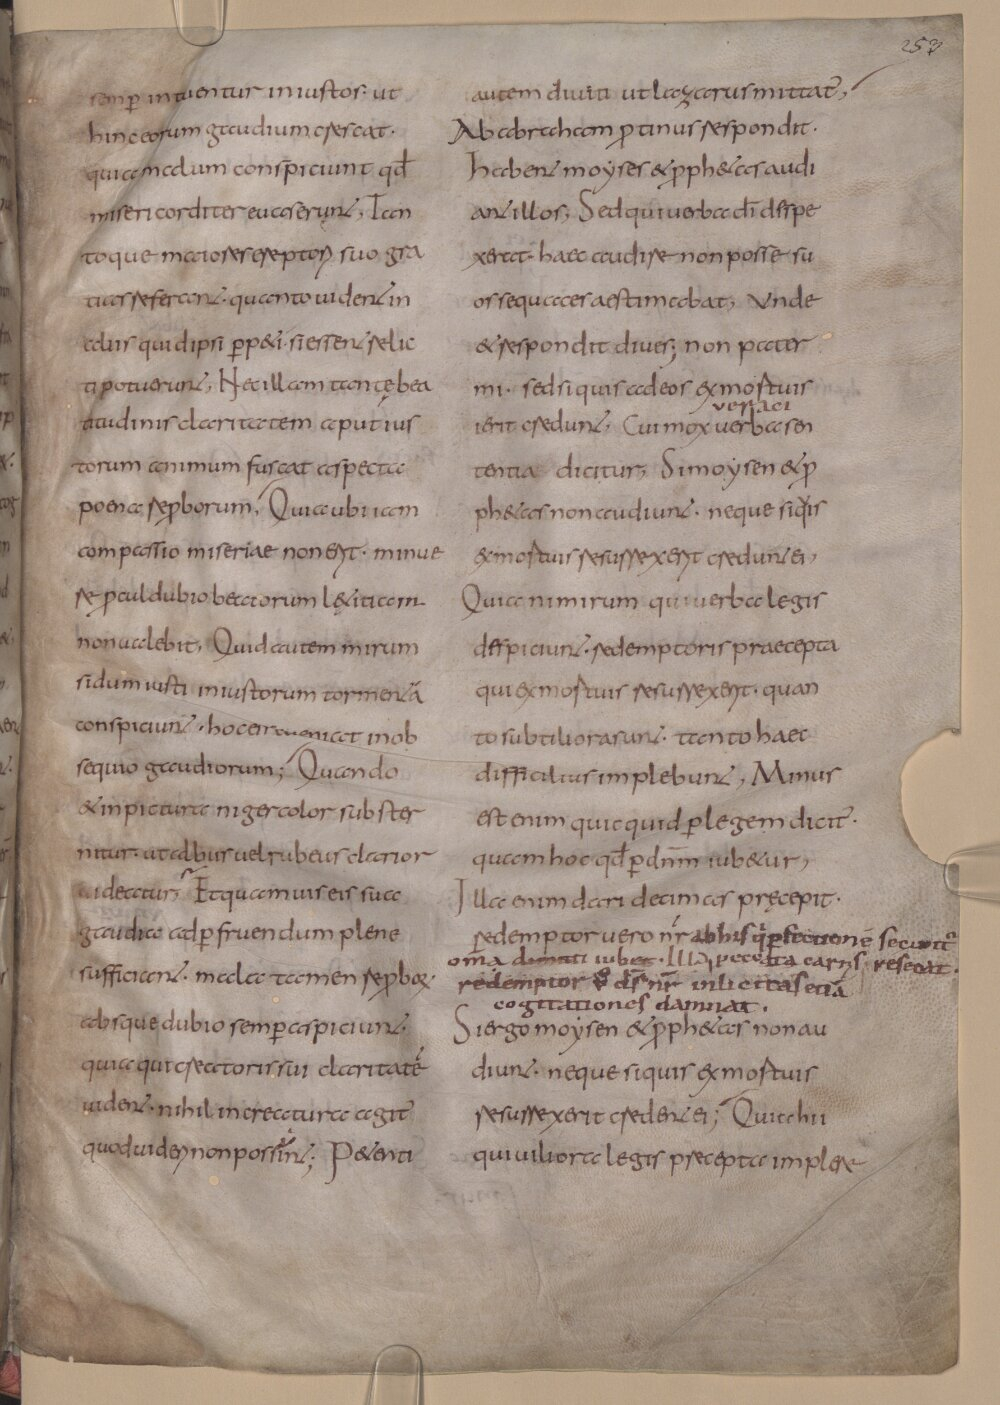 253
semp̄ intuentur iniustos· ut
hinc eorum gaudium crescat·
quia malum conspiciunt qd̄
misericorditer euaserunt, Tan
toque maiores ereptori suo gra
tias referant· quanto uident in
aliis quid ipsi ꝑpeti· si essent relic
ti potuerunt, Nec illam tantę bea
titudinis claritatem aput ius
torum animum fuscat aspecta
poena reproborum, Quia ubi iam
compassio miseriae non erit· minue
re ꝓculdubio beatorum lætitiam
non ualebit, Quid autem mirum
si dum iusti iniustorum tormenta
conspiciunt· hoc eis ueniat in ob
sequio gaudiorum; Quando
& in pictura niger color subster
nitur· ut albus uel rubeus clarior
uideatur, Et quamuis eis sua
gaudia ad ꝑfruendum plene
sufficiant· mala tamen reproboꝝ
absque dubio semp̄ aspiciunt·
quia qui creatoris sui claritatē
uident· nihil in creatura agit̄
quod uidere non possint; Petenti
autem diuiti ut lazarus mittat̄,
Abraham ꝓtinus respondit·
Habent moysen & ꝓphetas audi
ant illos, Sed qui uerba dī despe
xerat· haec audire non posse su
os sequaces aestimabat, Vnde
& respondit diues, non pater
mi· sed si quis ad eos ex mortuis
ierit credunt, Cui mox uerba sen
veraci
tentia dicitur, Si moysen & ꝓ
phetas non audiunt· neque siquis
ex mortuis resurrexerit credunt ei,
Quia nimirum qui uerba legis
despiciunt· redemptoris praecepta
qui ex mortuis resurrexerit· quan
to subtiliora sunt· tanto haec
difficilius implebunt, Minus
est enim quicquid ꝑ legem dicit̄·
quam hoc qd̄ ꝑ dn̄m iubetur,
Illa enim dari decimas pręcepit·
redemptor uero nr̄ ab his q ꝑfectionē secunt̄
om̄a dimitti iubet· Illa peccata carnis resecat·
redemptor ū ds̄ nr̄ inlicitas etiā
cogitationes damnat·
Si ergo moysen & ꝓphetas non au
diunt· neque siquis ex mortuis
resurrexerit credent ei; Quia hii
qui uiliora legis precepta implere